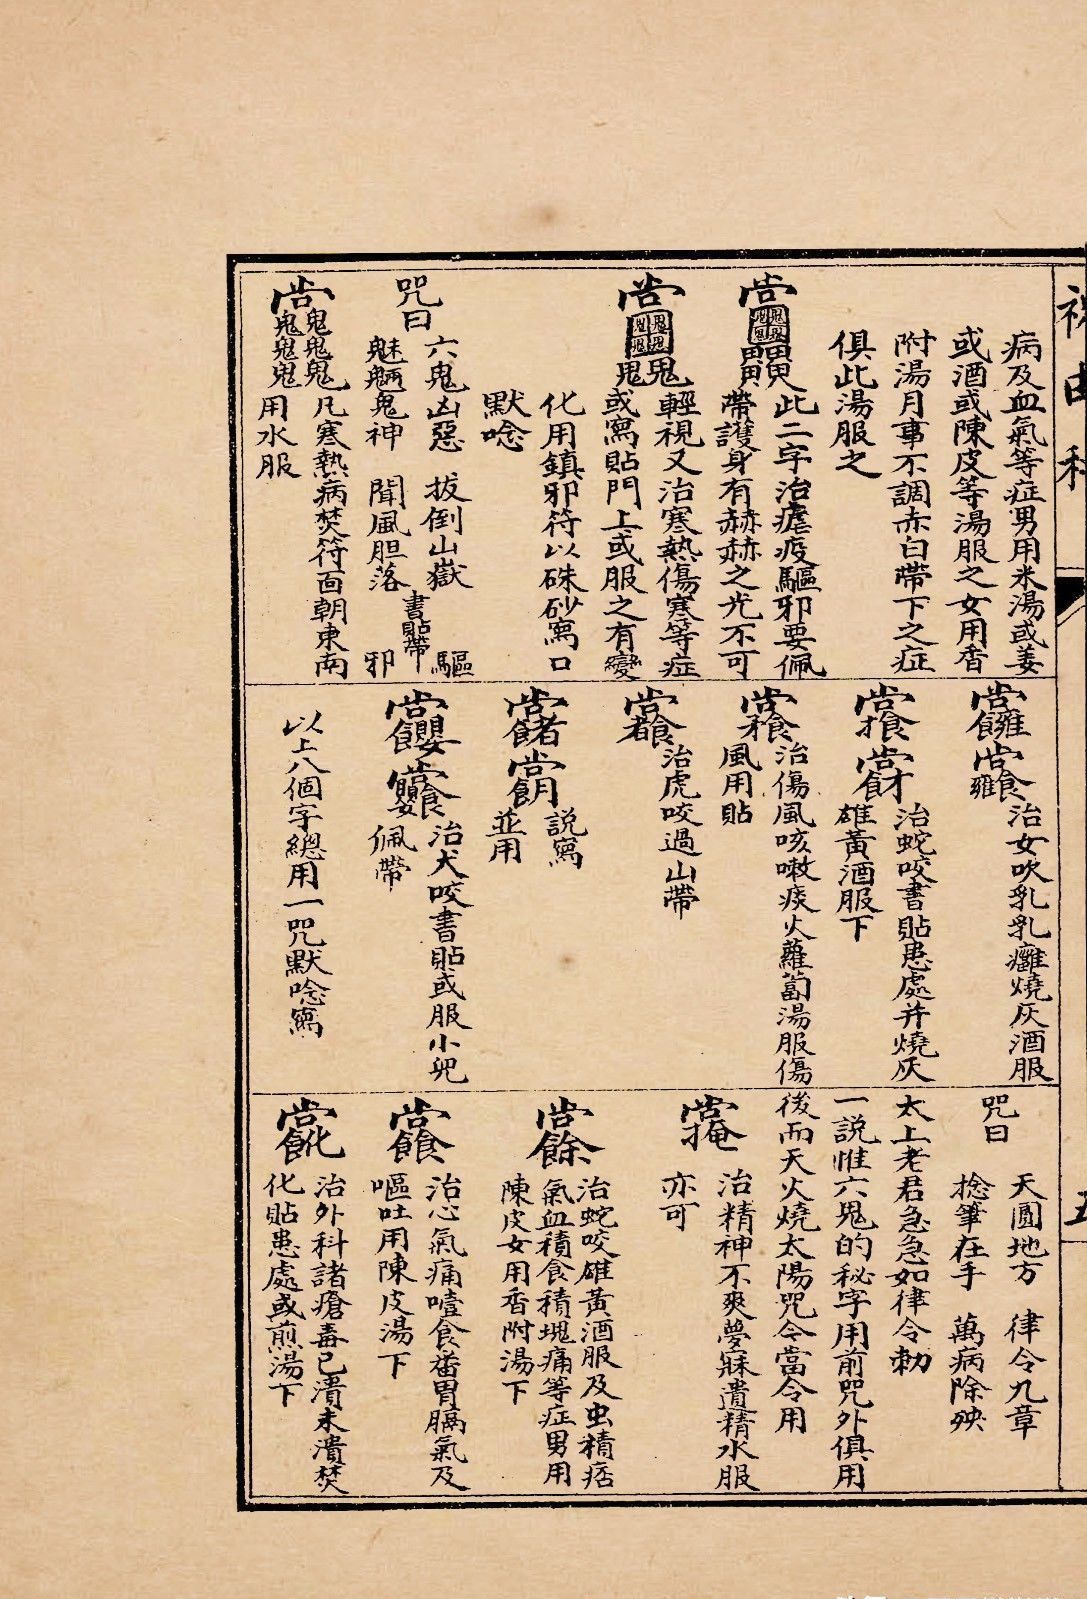 病及血氣等症男用米湯或姜
或酒或陳皮等湯服之女用香
附湯月事不調赤白帶下之症
俱此湯服之
此二字治瘧疫驅邪要佩
帶護身有赫赫之光不可
輕視又治寒熱傷寒等症
或寫貼門上或服之有變
化用鎮邪符以硃砂寫口
默唸
咒曰
六鬼凶惡 拔倒山嶽
魅魎鬼神 聞風胆落
書貼帶
驅
邪
凡寒熱病焚符面朝東南
用水服
治女吹乳乳癰燒灰酒服
治蛇咬書貼患處并燒灰
雄黃酒服下
治傷風咳嗽痰火蘿蔔湯服傷
風用貼
治虎咬過山帶
説寫
並用
治犬咬書貼或服小兒
佩帶
以上八個字總用一咒默唸寫
咒曰
天圓地方 律令九章
捻筆在手 萬病除殃
太上老君急急如律令勅
一説惟六鬼的秘字用前咒外俱用
後而天火燒太陽咒令當令用
治精神不爽夢寐遺精水服
亦可
治蛇咬雄黃酒服及虫積痞
氣血積食積塊痛等症男用
陳皮女用香附湯下
治心氣痛噎食番胃膈氣及
嘔吐用陳皮湯下
治外科諸瘡毒已潰未潰焚
化貼患處或煎湯下